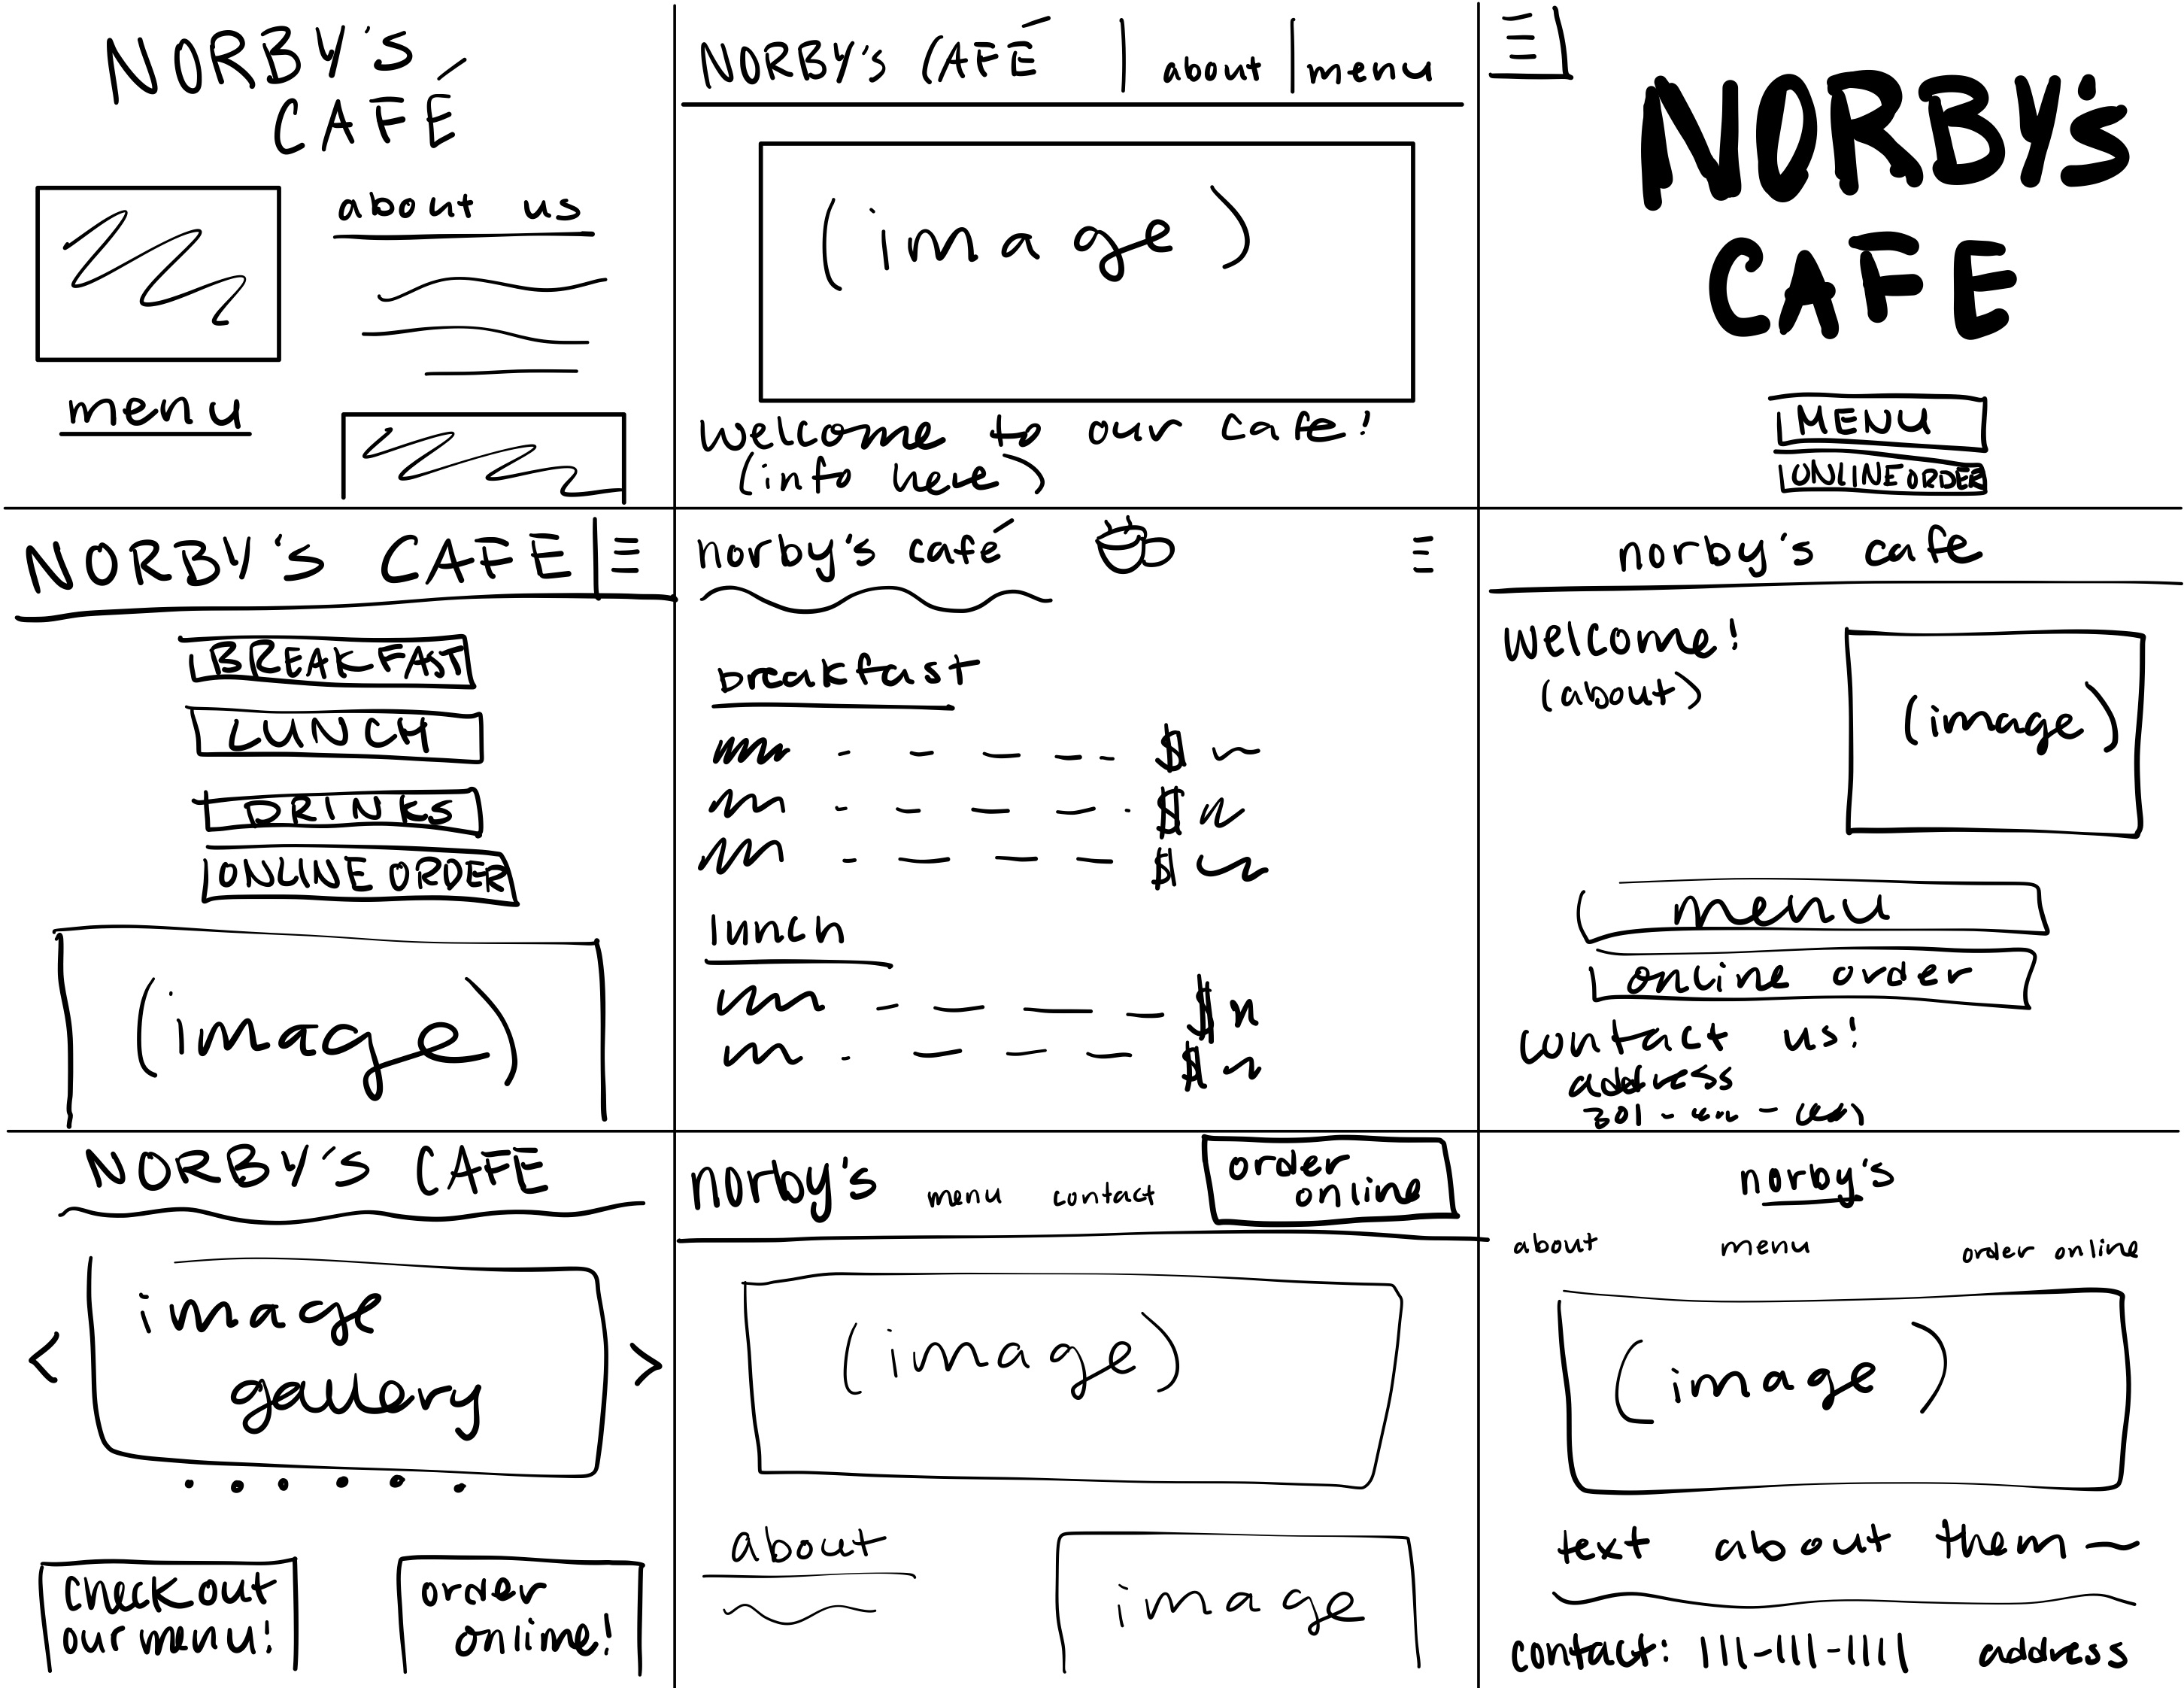 NORBY's
CAFÉ
about us
menu
NORBY's CAFÉ
about
menu
(image)
Welcome to our cafe!
(info here)
NORBY's
CAFE
MENU
ONLINE ORDER
NORBY's CAFE
BREAKFAST
LUNCH
DRINKS
ONLINE ORDER
(image)
norby's café
breakfast
$
$
$
lunch
$
$
norby's cafe
Welcome!
(about)
(image)
menu
online order
contact us!
address
301 -
NORBY'S CAFE
<
image
gallery
>
check out
our menu!
order
online!
norby's
menu
contact
order
online
(image)
about
image
norby's
about
menu
order online
(image)
text about them
contact: 111-111-1111 address